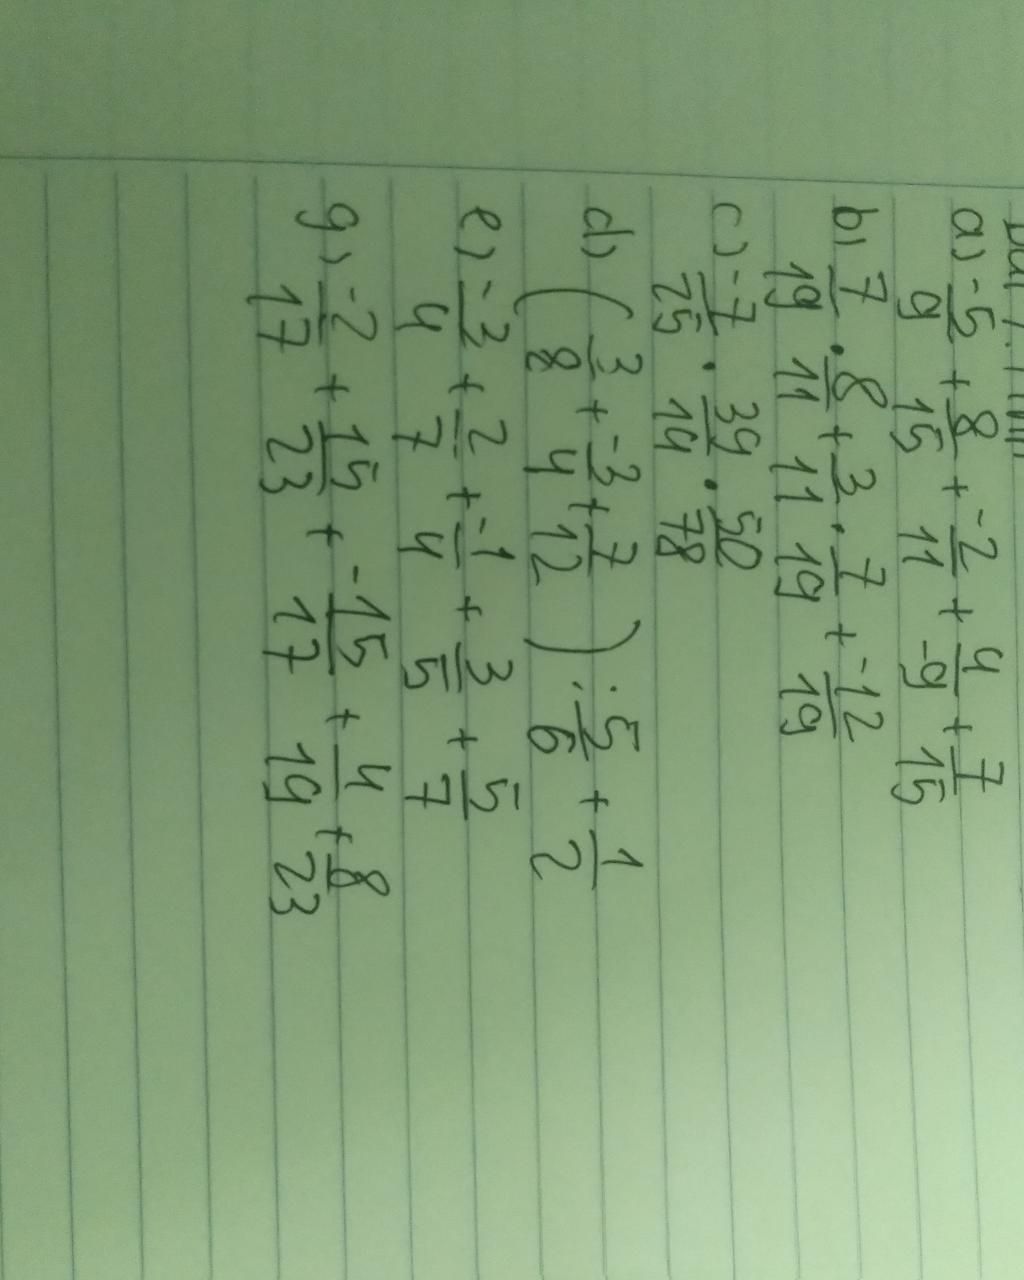 a) -5/9 + 8/15 + -2/11 + 4/-9 + 7/15
b) 7/19 . 8/11 + 3/11 . 7/19 + -12/19
c) -7/25 . 39/14 . 50/78
d) (3/8 + -3/4 + 7/12) : 5/6 + 1/2
e) -3/4 + 2/7 + -1/4 + 3/5 + 5/7
g) -2/17 + 15/23 + -15/17 + 4/19 + 8/23